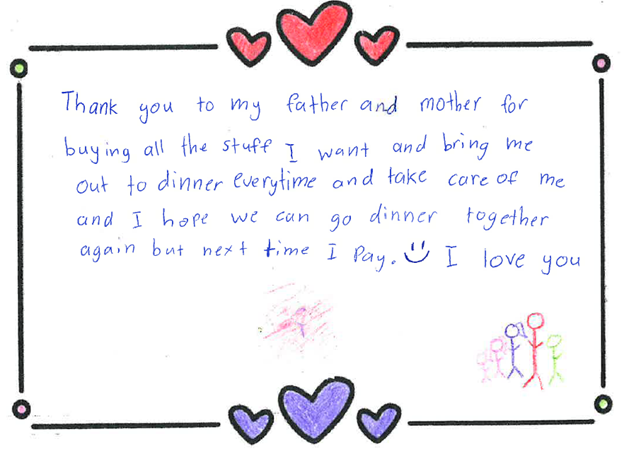 Thank you to my father and mother for
buying all the stuff I want and bring me
out to dinner everytime and take care of me
and I hope we can go dinner together
again but next time I Pay. I love you